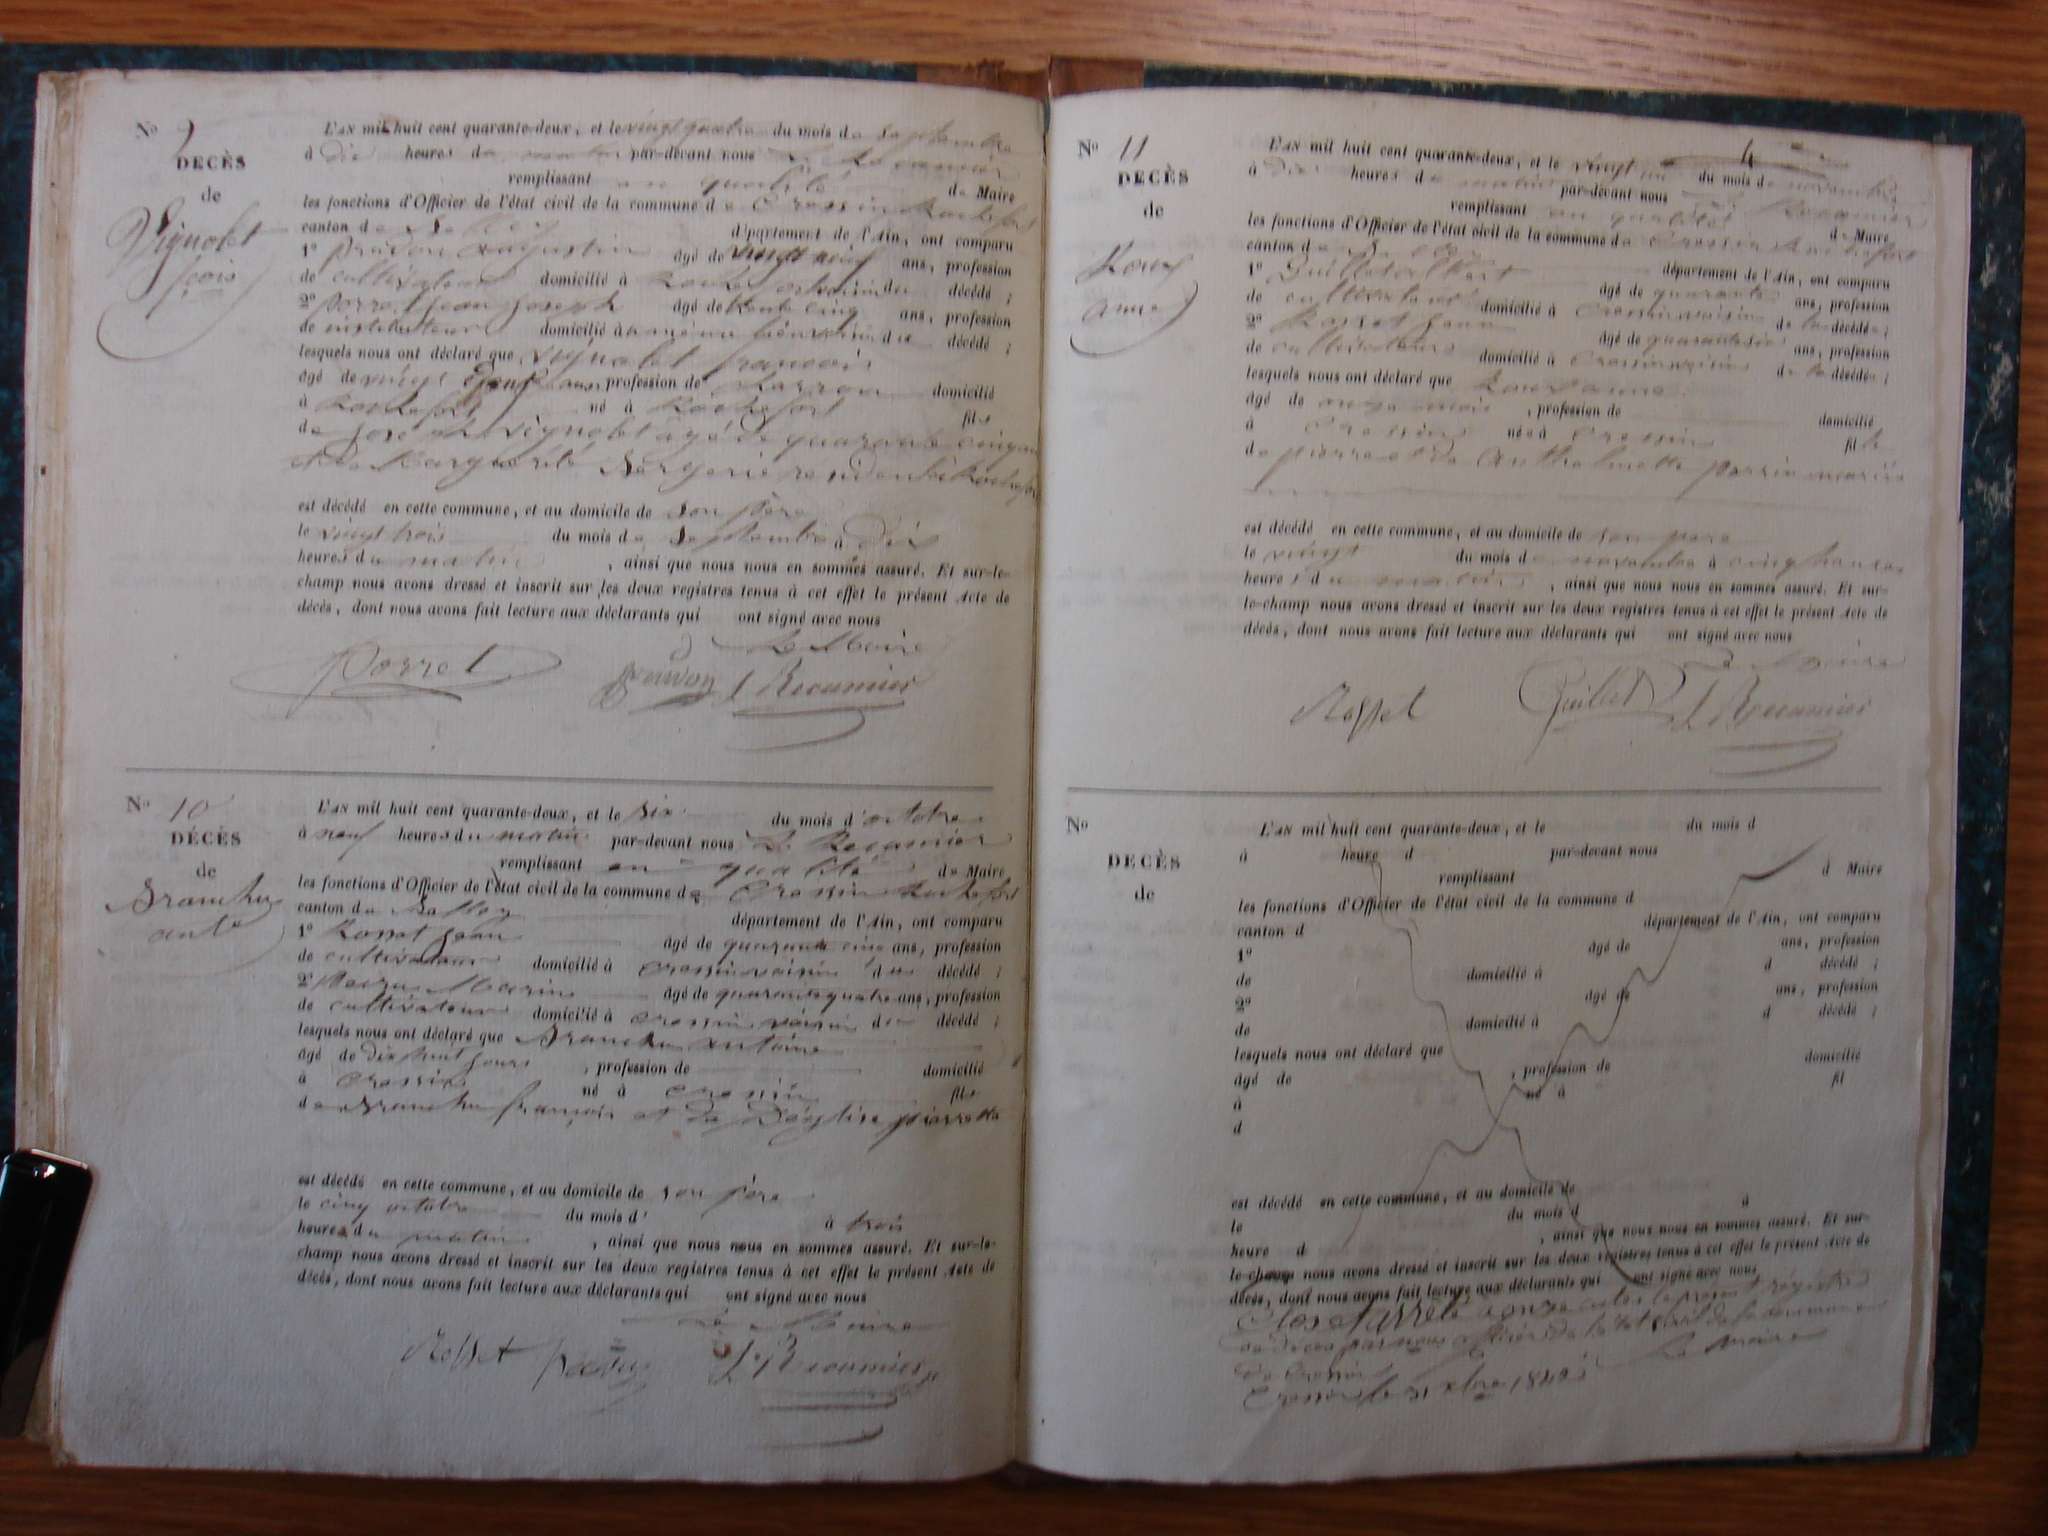 No 9
DECÈS
de
Vignolet
fçois
L'AN mil huit cent quarante-deux, et le vingt quatre du mois de septembre
à dix heures du matin par-devant nous L. Recamier
remplissant en qualité de Maire
les fonctions d'Officier de l'état civil de la commune de Cressin Rochefort
canton de département de l'Ain, ont comparu
1o prudon augustin âgé de vingt neuf ans, profession
de cultivateur domicilié à Rochefort voisin du décédé ;
2o porret jean joseph âgé de trente cinq ans, profession
de instituteur domicilié à voisin du décédé ;
lesquels nous ont déclaré que vignolet francois
âgé de vingt ans, profession de domicilié
à Rochefort né à Rochefort fils
de joseph vignolet agé de quarante cinq ans
et de Marguerite résident à Rochefort
est décédé en cette commune, et au domicile de son père
le vingt trois du mois de septembre à dix
heures du matin , ainsi que nous nous en sommes assuré. Et sur-le-
champ nous avons dressé et inscrit sur les deux registres tenus à cet effet le présent Acte de
décès, dont nous avons fait lecture aux déclarants qui ont signé avec nous
Le Maire
Porret prudon L Recamier
No 10
DÉCÈS
de
Branchu
ante
L'AN mil huit cent quarante-deux, et le six du mois d'octobre
à neuf heures du matin par-devant nous L. Recamier
remplissant en qualité de Maire
les fonctions d'Officier de l'état civil de la commune de Cressin Rochefort
canton de département de l'Ain, ont comparu
1o Rosset jean âgé de quarante cinq ans, profession
de cultivateur domicilié à cressin voisin du décédé ;
2o Marin âgé de quarante quatre ans, profession
de cultivateur domicilié à cressin voisin du décédé ;
lesquels nous ont déclaré que Branchu antoine
âgé de dix huit jours , profession de domicilié
à cressin né à cressin fils
de Branchu françois et de Déglise pierrette
est décédé en cette commune, et au domicile de son père
le cinq octobre du mois d' à trois
heures du matin , ainsi que nous nous en sommes assuré. Et sur-le-
champ nous avons dressé et inscrit sur les deux registres tenus à cet effet le présent Acte de
décès, dont nous avons fait lecture aux déclarants qui ont signé avec nous
Le Maire
Rosset L. Recamier
4
No 11
DECÈS
de
Roux
anne
L'AN mil huit cent quarante-deux, et le vingt un du mois de novembre
à dix heures du matin par-devant nous L. Recamier
remplissant en qualité de Maire
les fonctions d'Officier de l'état civil de la commune de Cressin Rochefort
canton de département de l'Ain, ont comparu
1o Guillet âgé de quarante ans, profession
de cultivateur domicilié à Cressin voisin de la décédée ;
2o Rosset jean âgé de quarante six ans, profession
de cultivateur domicilié à Cressin voisin de la décédée ;
lesquels nous ont déclaré que Roux anne
âgé de onze mois , profession de domicilié
à Cressin née à Cressin fille
de pierre et de Anthelmette perrin mariés
est décédé en cette commune, et au domicile de son pere
le vingt du mois de novembre à cinq heures
heures du matin , ainsi que nous nous en sommes assuré. Et sur-
le-champ nous avons dressé et inscrit sur les deux registres tenus à cet effet le présent Acte de
décès, dont nous avons fait lecture aux déclarants qui ont signé avec nous
Le Maire
Rosset Guillet L Recamier
No
DECÈS
de
L'AN mil huit cent quarante-deux, et le du mois d
à heure d par-devant nous
remplissant d Maire
les fonctions d'Officier de l'état civil de la commune d
canton d département de l'Ain, ont comparu
1o âgé de ans, profession
de domicilié à d décédé ;
2o âgé de ans, profession
de domicilié à d décédé ;
lesquels nous ont déclaré que
âgé de , profession de domicilié
à né à fil
d
est décédé en cette commune, et au domicile de
le du mois d à
heure d , ainsi que nous nous en sommes assuré. Et sur-
le-champ nous avons dressé et inscrit sur les deux registres tenus à cet effet le présent Acte de
décès, dont nous avons fait lecture aux déclarants qui ont signé avec nous
Clos et arrêté à onze actes le présent régistre
de décès par nous officier de l'état civil de la commune
de Cressin Le maire
Cressin le 31 xbre 1842